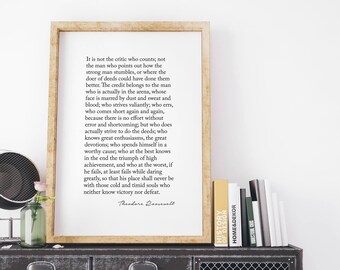 It is not the critic who counts; not
the man who points out how the
strong man stumbles, or where the
doer of deeds could have done them
better. The credit belongs to the man
who is actually in the arena, whose
face is marred by dust and sweat and
blood; who strives valiantly; who errs,
who comes short again and again,
because there is no effort without
error and shortcoming; but who does
actually strive to do the deeds; who
knows great enthusiasms, the great
devotions; who spends himself in a
worthy cause; who at the best knows
in the end the triumph of high
achievement, and who at the worst, if
he fails, at least fails while daring
greatly, so that his place shall never be
with those cold and timid souls who
neither know victory nor defeat.
Theodore Roosevelt
HOME&DEKOR